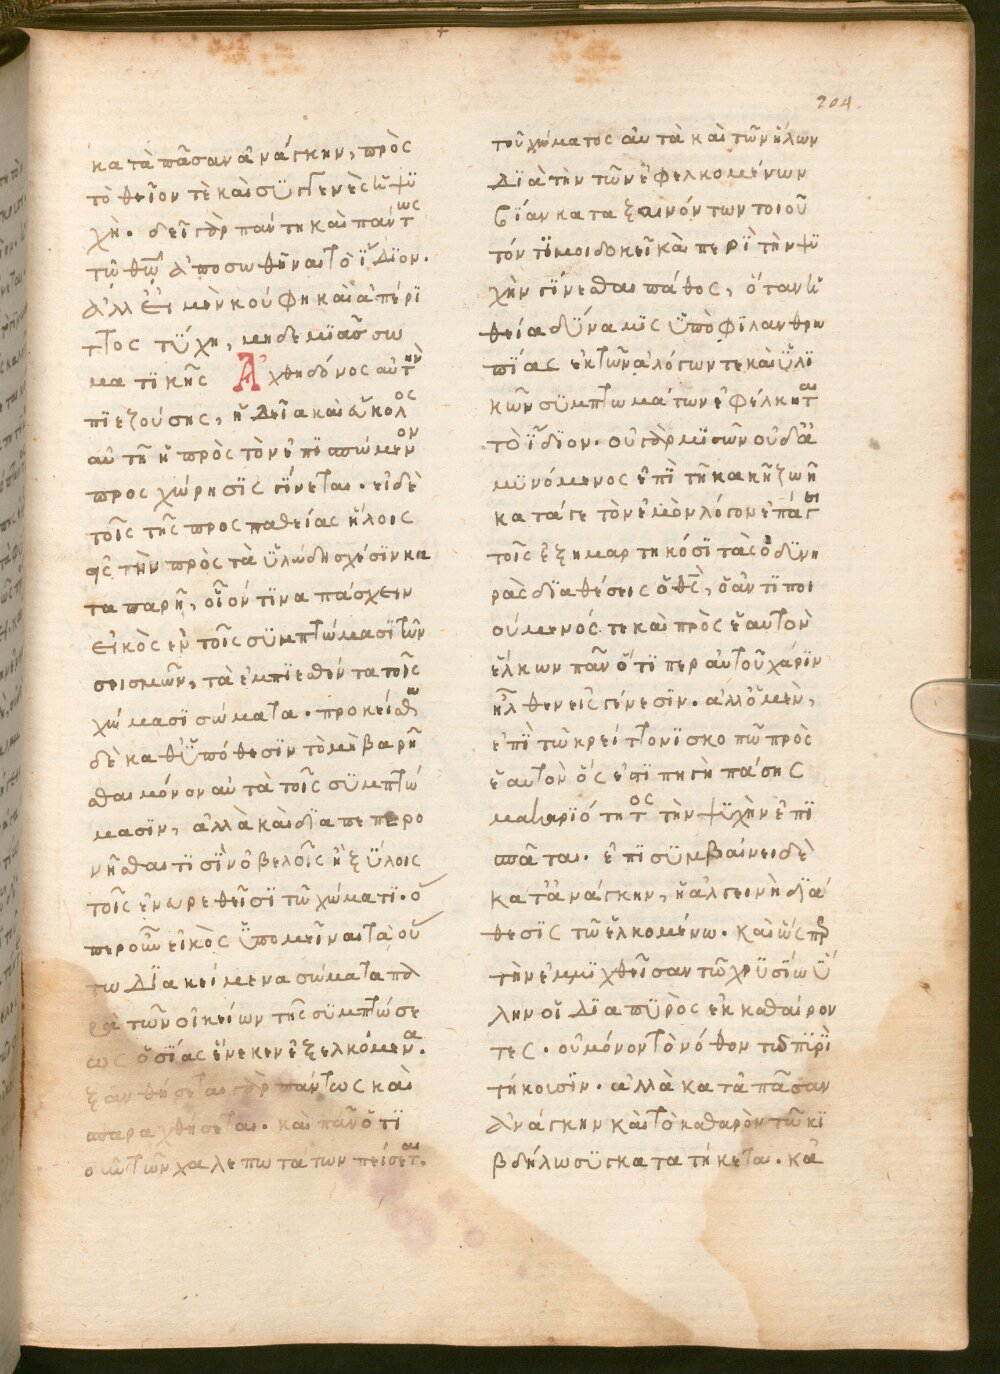 204
κατὰ πᾶσαν ἀνάγκην, πρὸς
τὸ θεῖον τὲ καὶ συγγενὲς ἡ ψυ
χὴ. δεῖ γὰρ πάντη καὶ πάντως
τῶ θεῶ ἀποσωθῆναι τὸ ἴδιον.
ἀλλ εἰ μὲν κούφη καὶ ἀπέρι
ττος τύχη, μηδεμιᾶς σω
ματικῆς Ἀχθηδόνος αὐτὴν
πιεζούσης, ἡδεῖα καὶ εὔκολος
αὐτῆ ἡ πρὸς τὸν ἐπισπώμενον
προσχώρησις γίνεται. εἰ δὲ
τοῖς τῆς προσπαθείας ἥλοις
εἰς τὴν πρὸς τὰ ὑλώδη σχέσιν κα
ταπαρῆ, οἷόν τινα πάσχειν
εἰκὸς ἐν τοῖς συμπτώμασι τῶν
σεισμῶν, τὰ ἐμπιεσθέντα τοῖς
χώμασι σώματα. προκείσθω
δὲ καθ ὑπόθεσιν τὸ μὴ βαρῆ
σθαι μόνον αὐτὰ τοῖς συμπτώ
μασιν, ἀλλὰ καὶ διαπεπερο
νῆσθαι τισὶν ὀβελοῖς ἢ ξύλοις
τοῖς ἐνευρεθεῖσι τῶ χώματι. ὅ
περ οὖν εἰκὸς ὑπομεῖναι τὰ οὕ
τω διακείμενα σώματα πα
ρὰ τῶν οἰκείων τῆς συμπτώσε
ως ὁσίας ἕνεκεν ἐξελκόμενα.
ξανθήσεται γὰρ πάντως καὶ
σπαραχθήσεται. καὶ πᾶν ὅτι
οὖν τῶν χαλεπωτάτων πείσεται.
τοῦ χώματος αὐτὰ καὶ τῶν ἥλων
διὰ τὴν τῶν ἐφελκομένων
βίαν καταξαινόντων τοιοῦ
τόν τι μοι δοκεῖ κὰ περὶ τὴν ψυ
χὴν γίνεσθαι πάθος, ὅταν ἡ
θεία δύναμις ὑπὸ φιλανθρω
πίας ἐκ τῶν ἀλόγων τε καὶ ὑλι
κῶν συμπτωμάτων ἐφέλκηται
τὸ ἴδιον. οὐ γὰρ μισῶν οὐδὲ ἀ
μυνόμενος ἐπὶ τῆ κακῆ ζωῆ
κατά γε τὸν ἐμὸν λόγον ἐπάγει
τοῖς ἐξημαρτηκόσι τὰς ὀδυνη
ρὰς διαθέσεις ὁ θς, ὁ ἀντιποι
ούμενός τε καὶ πρὸς ἑαυτὸν
ἕλκων πᾶν ὅτι περ αὐτοῦ χάριν
ἦλθεν εἰς γένεσιν. ἀλλ ὁ μὲν,
ἐπὶ τῶ κρείττονι σκοπῶ πρὸς
ἑαυτὸν ὅς ἐστι πηγὴ πάσης
μακαριότητος τὴν ψυχὴν ἐπι
σπᾶται. ἐπισυμβαίνει δὲ
κατ ἀνάγκην, ἡ ἀλγεινὴ διά
θεσις τῶ ἑλκομένω. καὶ ὥσπερ
τὴν ἐμμιχθεῖσαν τῶ χρυσίω ὕ
λην οἱ διὰ πυρὸς ἐκκαθαίρον
τες. οὐ μόνον τὸ νόθον τῶ πυρὶ
τήκουσιν. ἀλλὰ κατὰ πᾶσαν
ἀνάγκην καὶ τὸ καθαρὸν τῶ κι
βδήλω συγκατατήκεται. κἀ